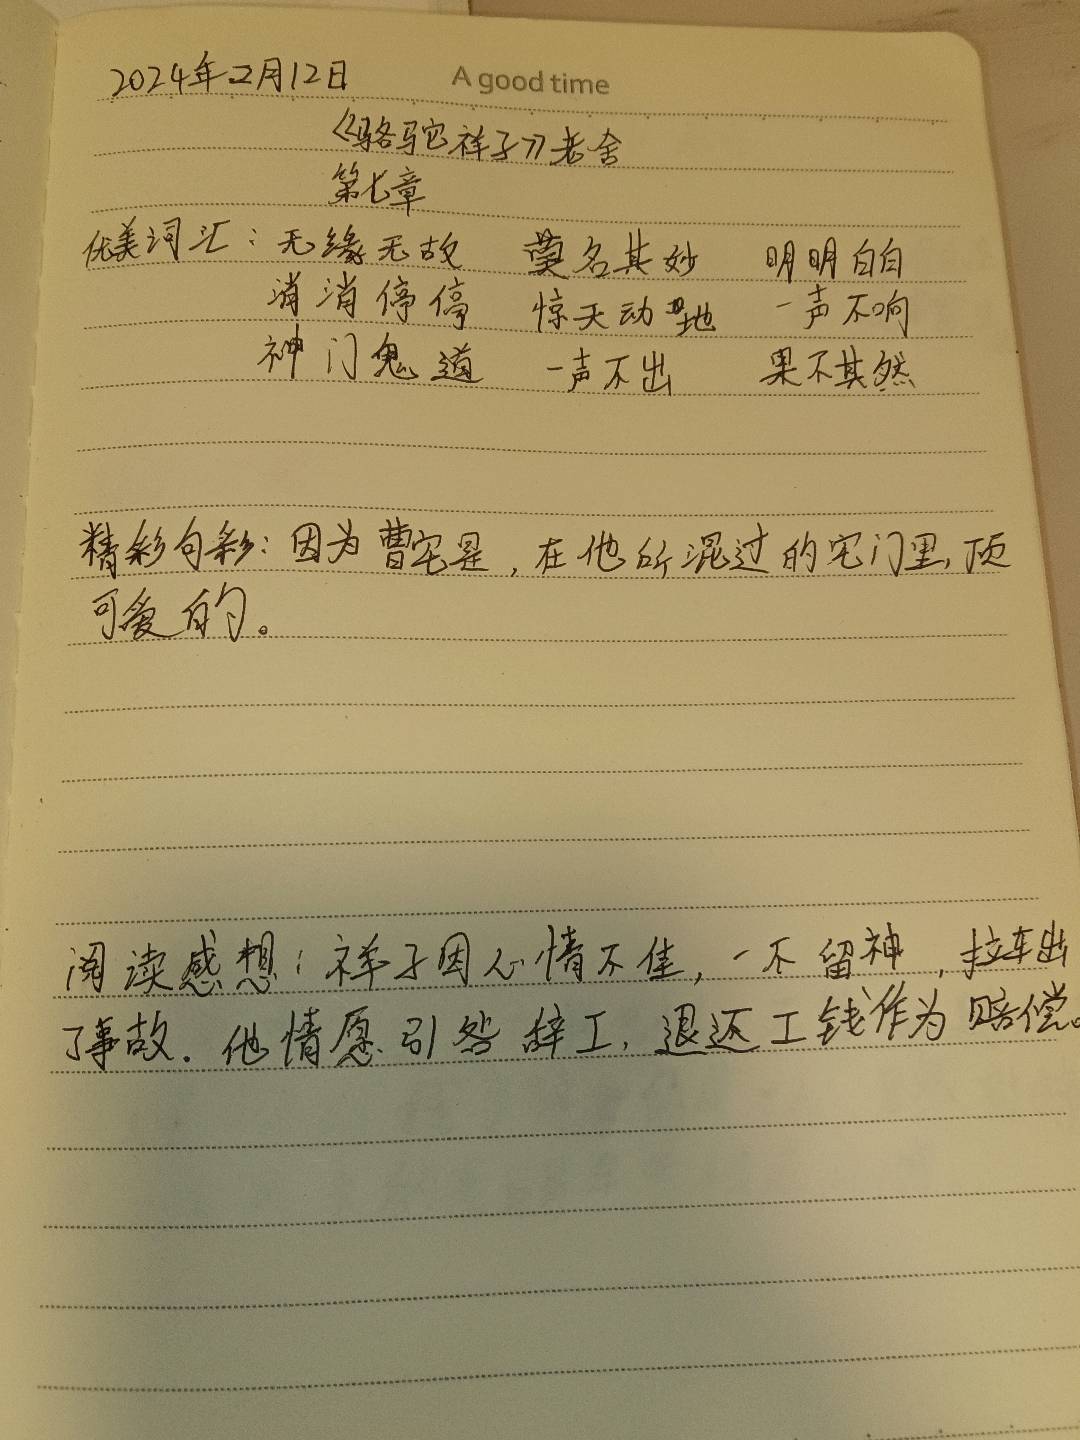 2024年2月12日 A good time
《骆驼祥子》老舍
第七章
优美词汇：无缘无故 莫名其妙 明明白白
消消停停 惊天动地 一声不响
神门鬼道 一声不出 果不其然
精彩句彩：因为曹宅是，在他所混过的宅门里，顶
可爱的。
阅读感想：祥子因心情不佳，一不留神，拉车出
了事故．他情愿引咎辞工，退还工钱作为赔偿。